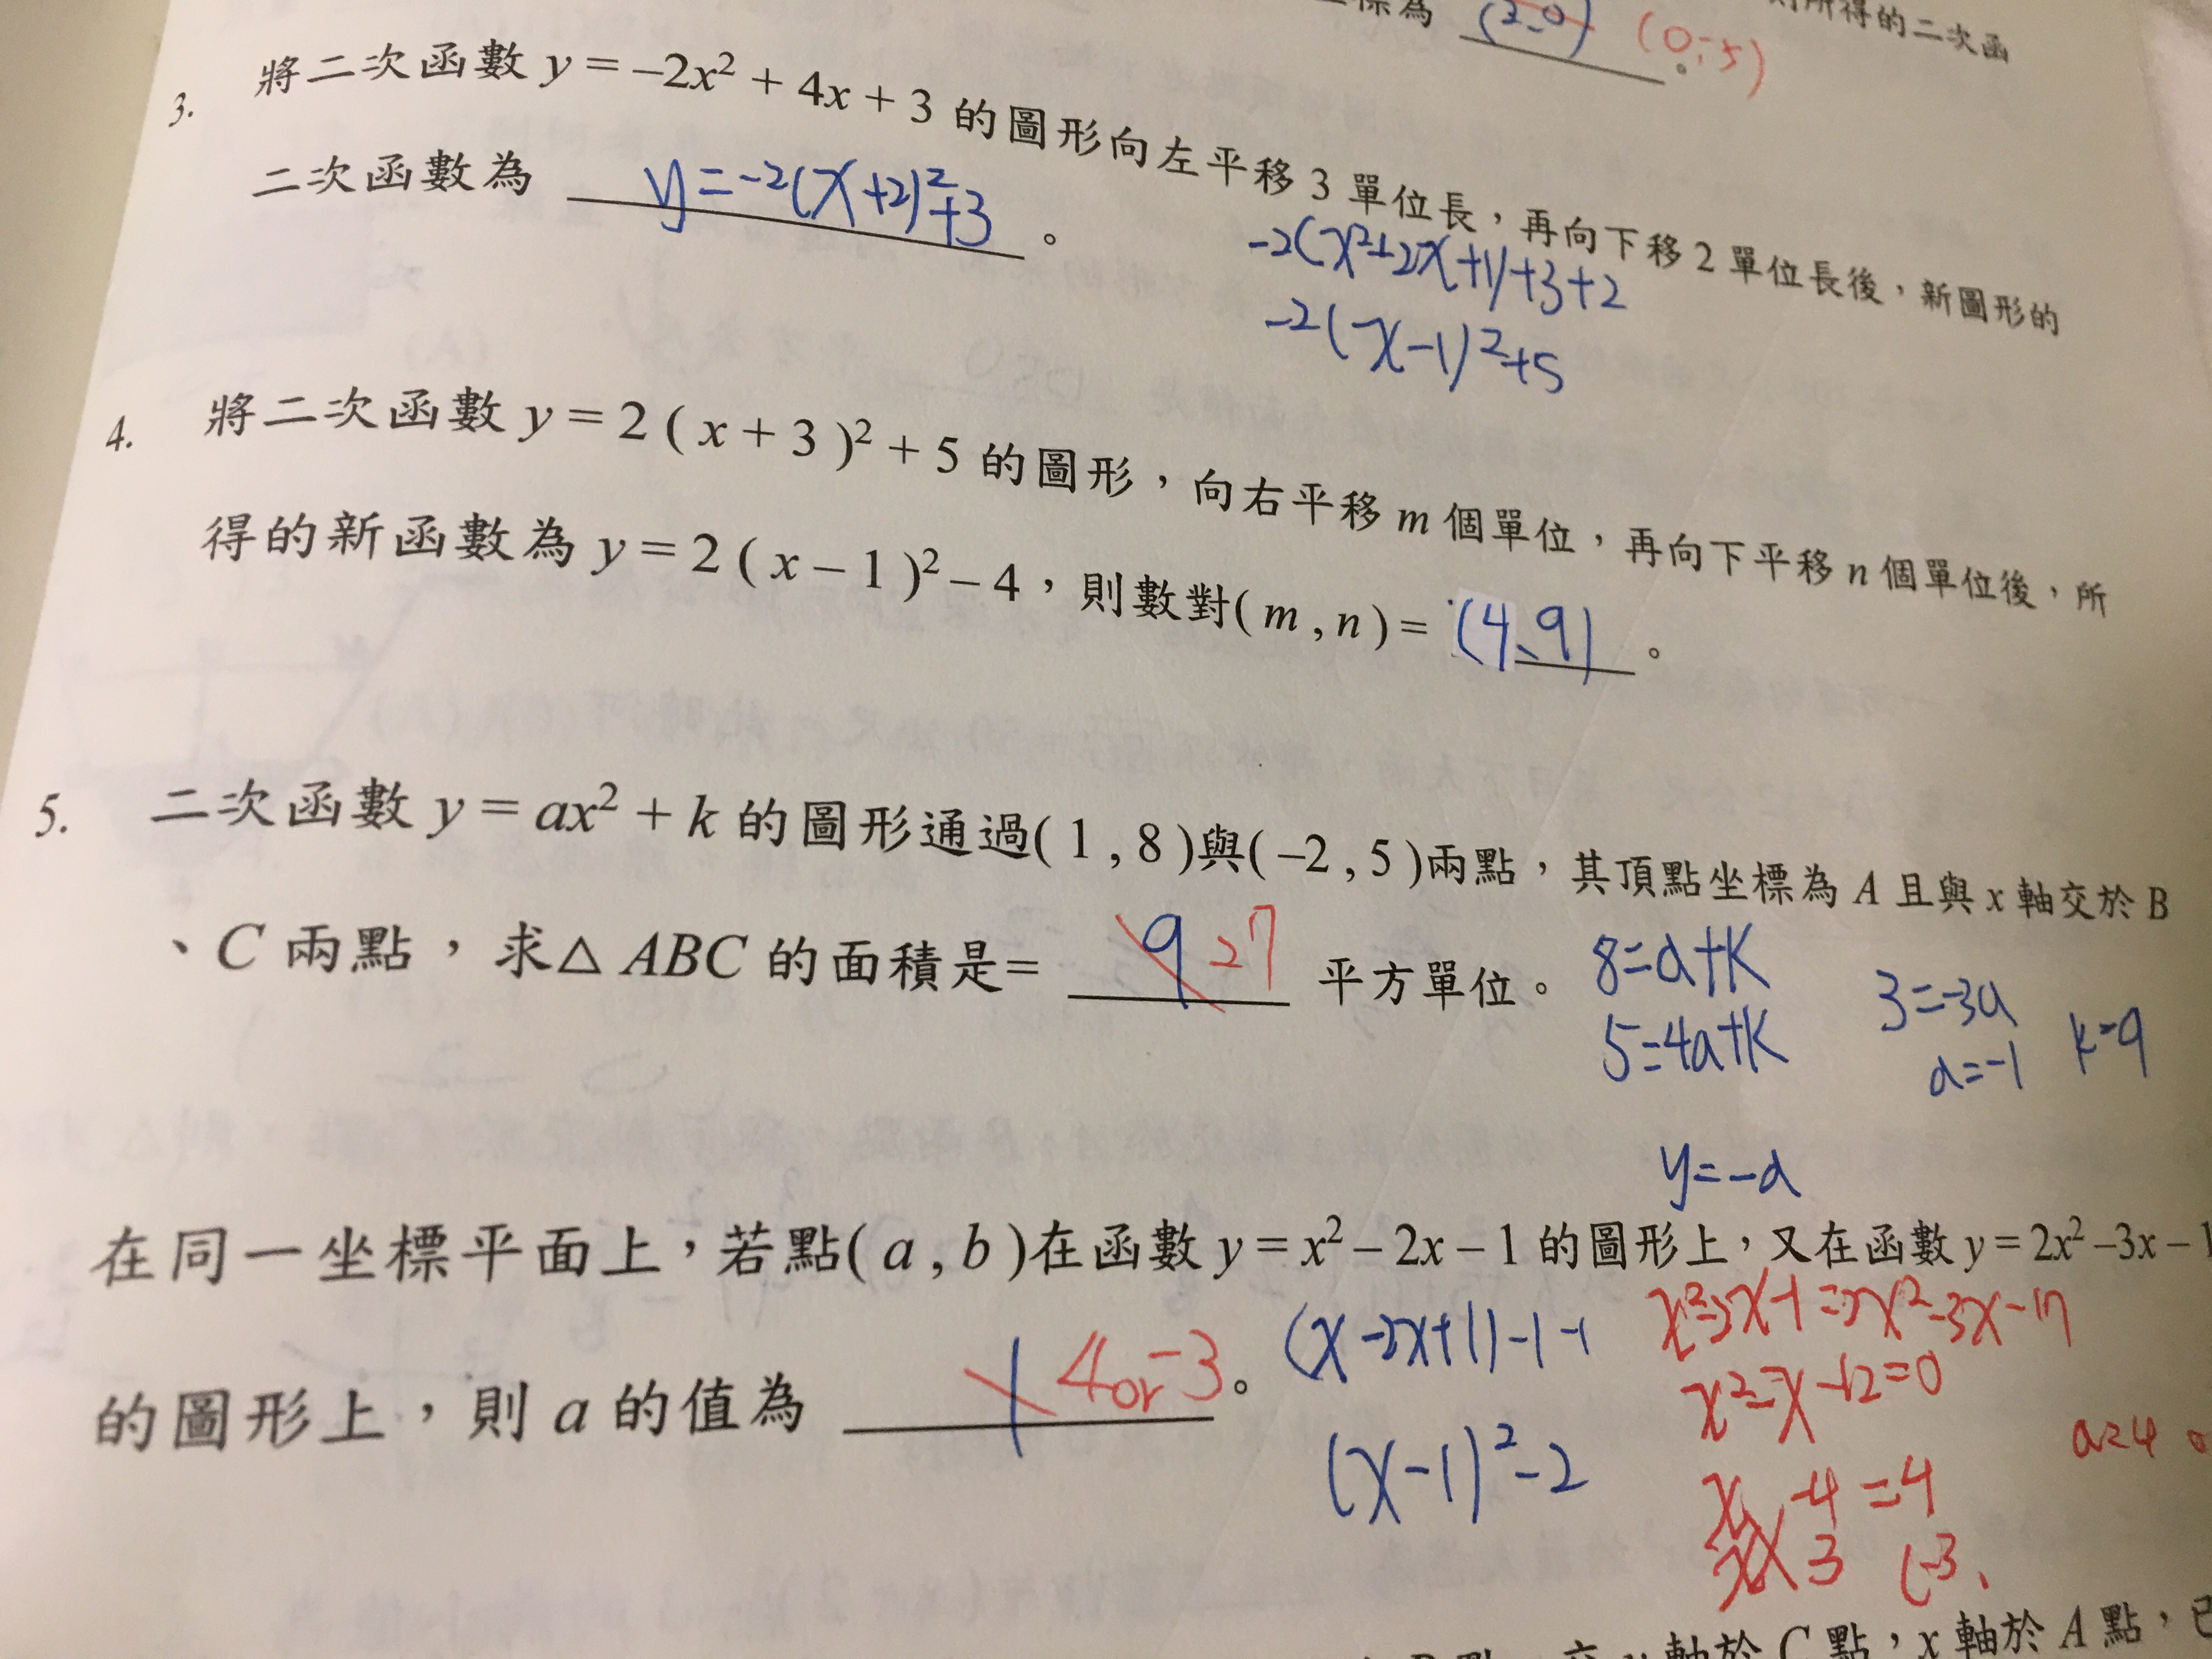 標為 (2,0) (0,-5) 。 則所得的二次函
3. 將二次函數 y = –2x² + 4x + 3 的圖形向左平移 3 單位長，再向下移 2 單位長後，新圖形的
二次函數為 y=-2(x+2)²+3 。
-2(x²+2x+1)+3+2
-2(x-1)²+5
4. 將二次函數 y = 2 ( x + 3 )² + 5 的圖形，向右平移 m 個單位，再向下平移 n 個單位後，所
得的新函數為 y = 2 ( x – 1 )² – 4，則數對( m , n ) = (4、9) 。
5. 二次函數 y = ax² + k 的圖形通過( 1 , 8 )與( –2 , 5 )兩點，其頂點坐標為 A 且與 x 軸交於 B
、C 兩點，求△ ABC 的面積是= 9 27 平方單位。
8=a+k
5=4a+k
3=-3a
a=-1 k=9
y=-a
在同一坐標平面上，若點( a , b )在函數 y = x² – 2x – 1 的圖形上，又在函數 y = 2x² –3x – 1
的圖形上，則 a 的值為 1 4or-3 。
(x-2x+1)-1-1
(x-1)²-2
x²-2x-1=2x²-3x-17
x²-x-12=0
a=4
x -4 =4
x 3 (-3、
軸於 C 點，x 軸於 A 點，已